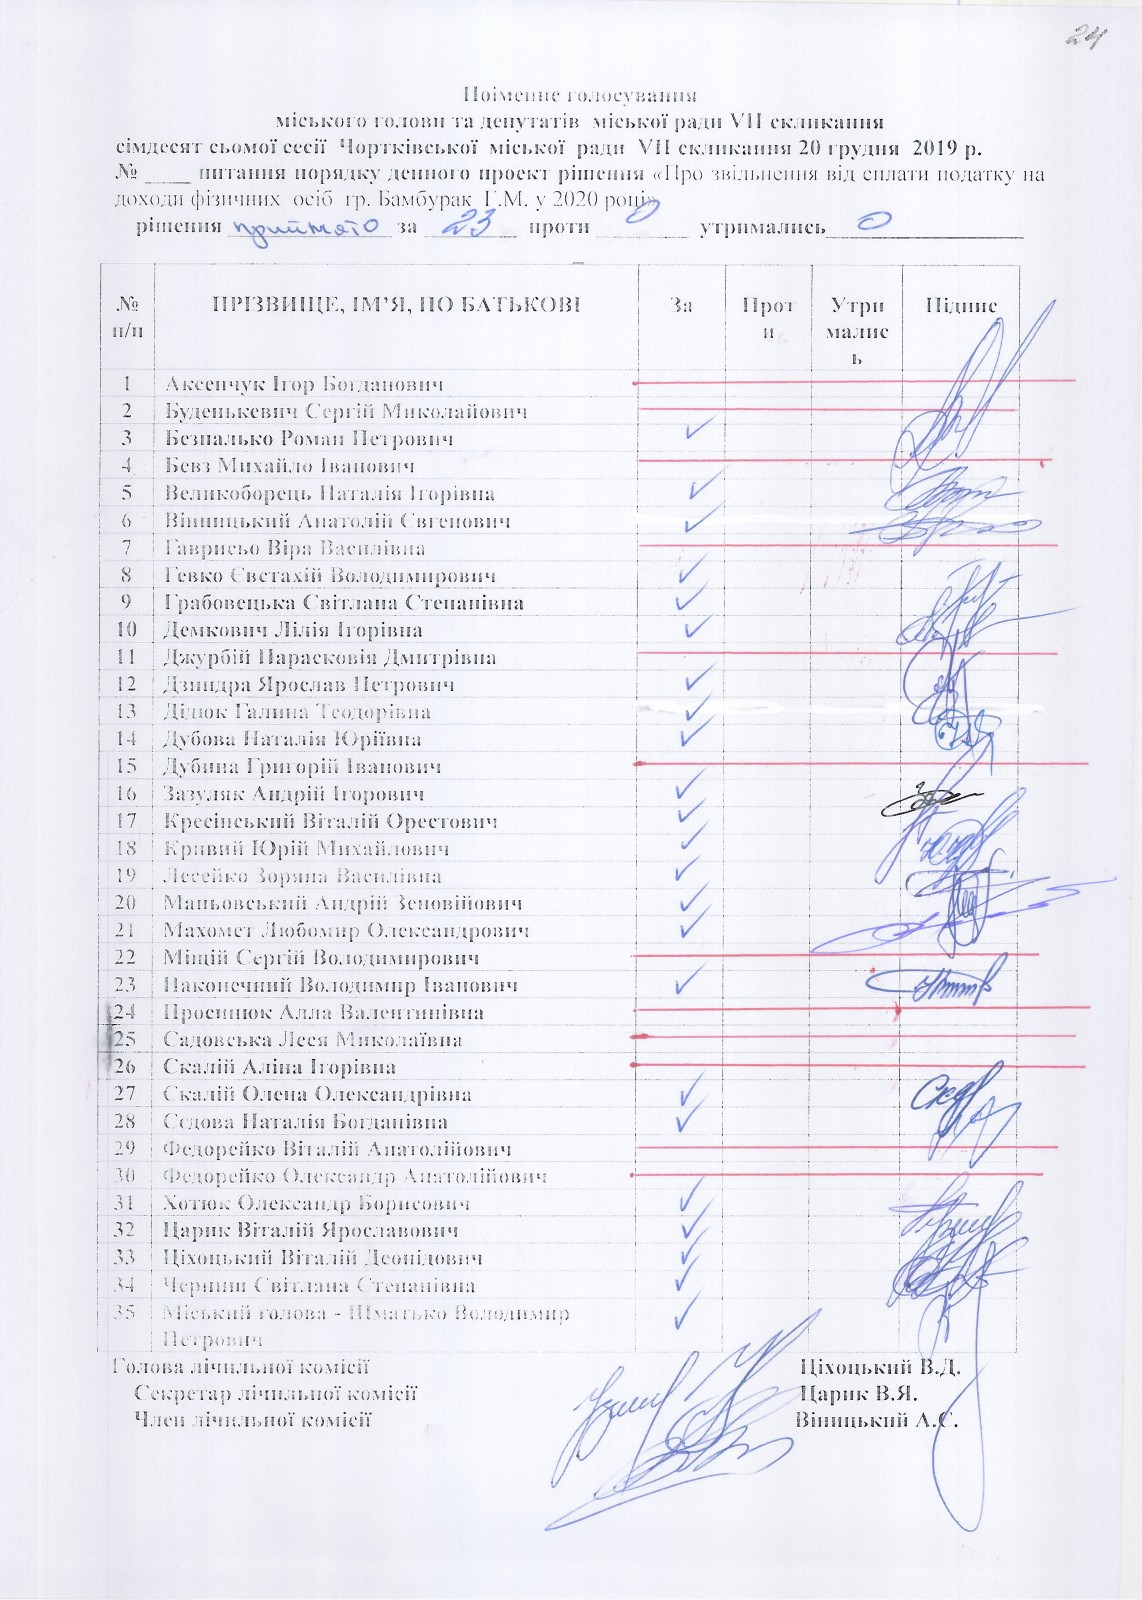 24
Поіменне голосування
міського голови та депутатів міської ради VII скликання
сімдесят сьомої сесії Чортківської міської ради VII скликання 20 грудня 2019 р.
№ ____ питання порядку денного проект рішення «Про звільнення від сплати податку на
доходи фізичних осіб гр. Бамбурак Г.М. у 2020 році»
рішення прийнято за 23 проти 0 утримались 0
№ п/п ПРІЗВИЩЕ, ІМ’Я, ПО БАТЬКОВІ За Проти Утримались Підпис
1 Аксенчук Ігор Богданович
2 Буденькевич Сергій Миколайович
3 Безпалько Роман Петрович ✓
4 Бевз Михайло Іванович
5 Великоборець Наталія Ігорівна ✓
6 Віницький Анатолій Євгенович ✓
7 Гаврисьо Віра Василівна
8 Гевко Євстахій Володимирович ✓
9 Грабовецька Світлана Степанівна ✓
10 Демкович Лілія Ігорівна ✓
11 Джурбій Парасковія Дмитрівна
12 Дзиндра Ярослав Петрович ✓
13 Дідюк Галина Теодорівна ✓
14 Дубова Наталія Юріївна ✓
15 Дубина Григорій Іванович
16 Зазуляк Андрій Ігорович ✓
17 Кресінський Віталій Орестович ✓
18 Кривий Юрій Михайлович ✓
19 Лесейко Зоряна Василівна ✓
20 Маньовський Андрій Зеновійович ✓
21 Махомет Любомир Олександрович ✓
22 Міщій Сергій Володимирович
23 Наконечний Володимир Іванович ✓
24 Просинюк Алла Валентинівна
25 Садовська Леся Миколаївна
26 Скалій Аліна Ігорівна
27 Скалій Олена Олександрівна ✓
28 Сєдова Наталія Богданівна ✓
29 Федорейко Віталій Анатолійович
30 Федорейко Олександр Анатолійович
31 Хотюк Олександр Борисович ✓
32 Царик Віталій Ярославович ✓
33 Ціхоцький Віталій Леонідович ✓
34 Черниш Світлана Степанівна ✓
35 Міський голова - Шматько Володимир ✓
Петрович
Голова лічильної комісії Ціхоцький В.Л.
Секретар лічильної комісії Царик В.Я.
Член лічильної комісії Віницький А.Є.